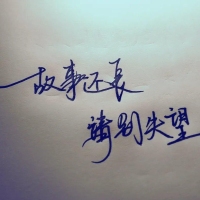 故事还长
請别失望